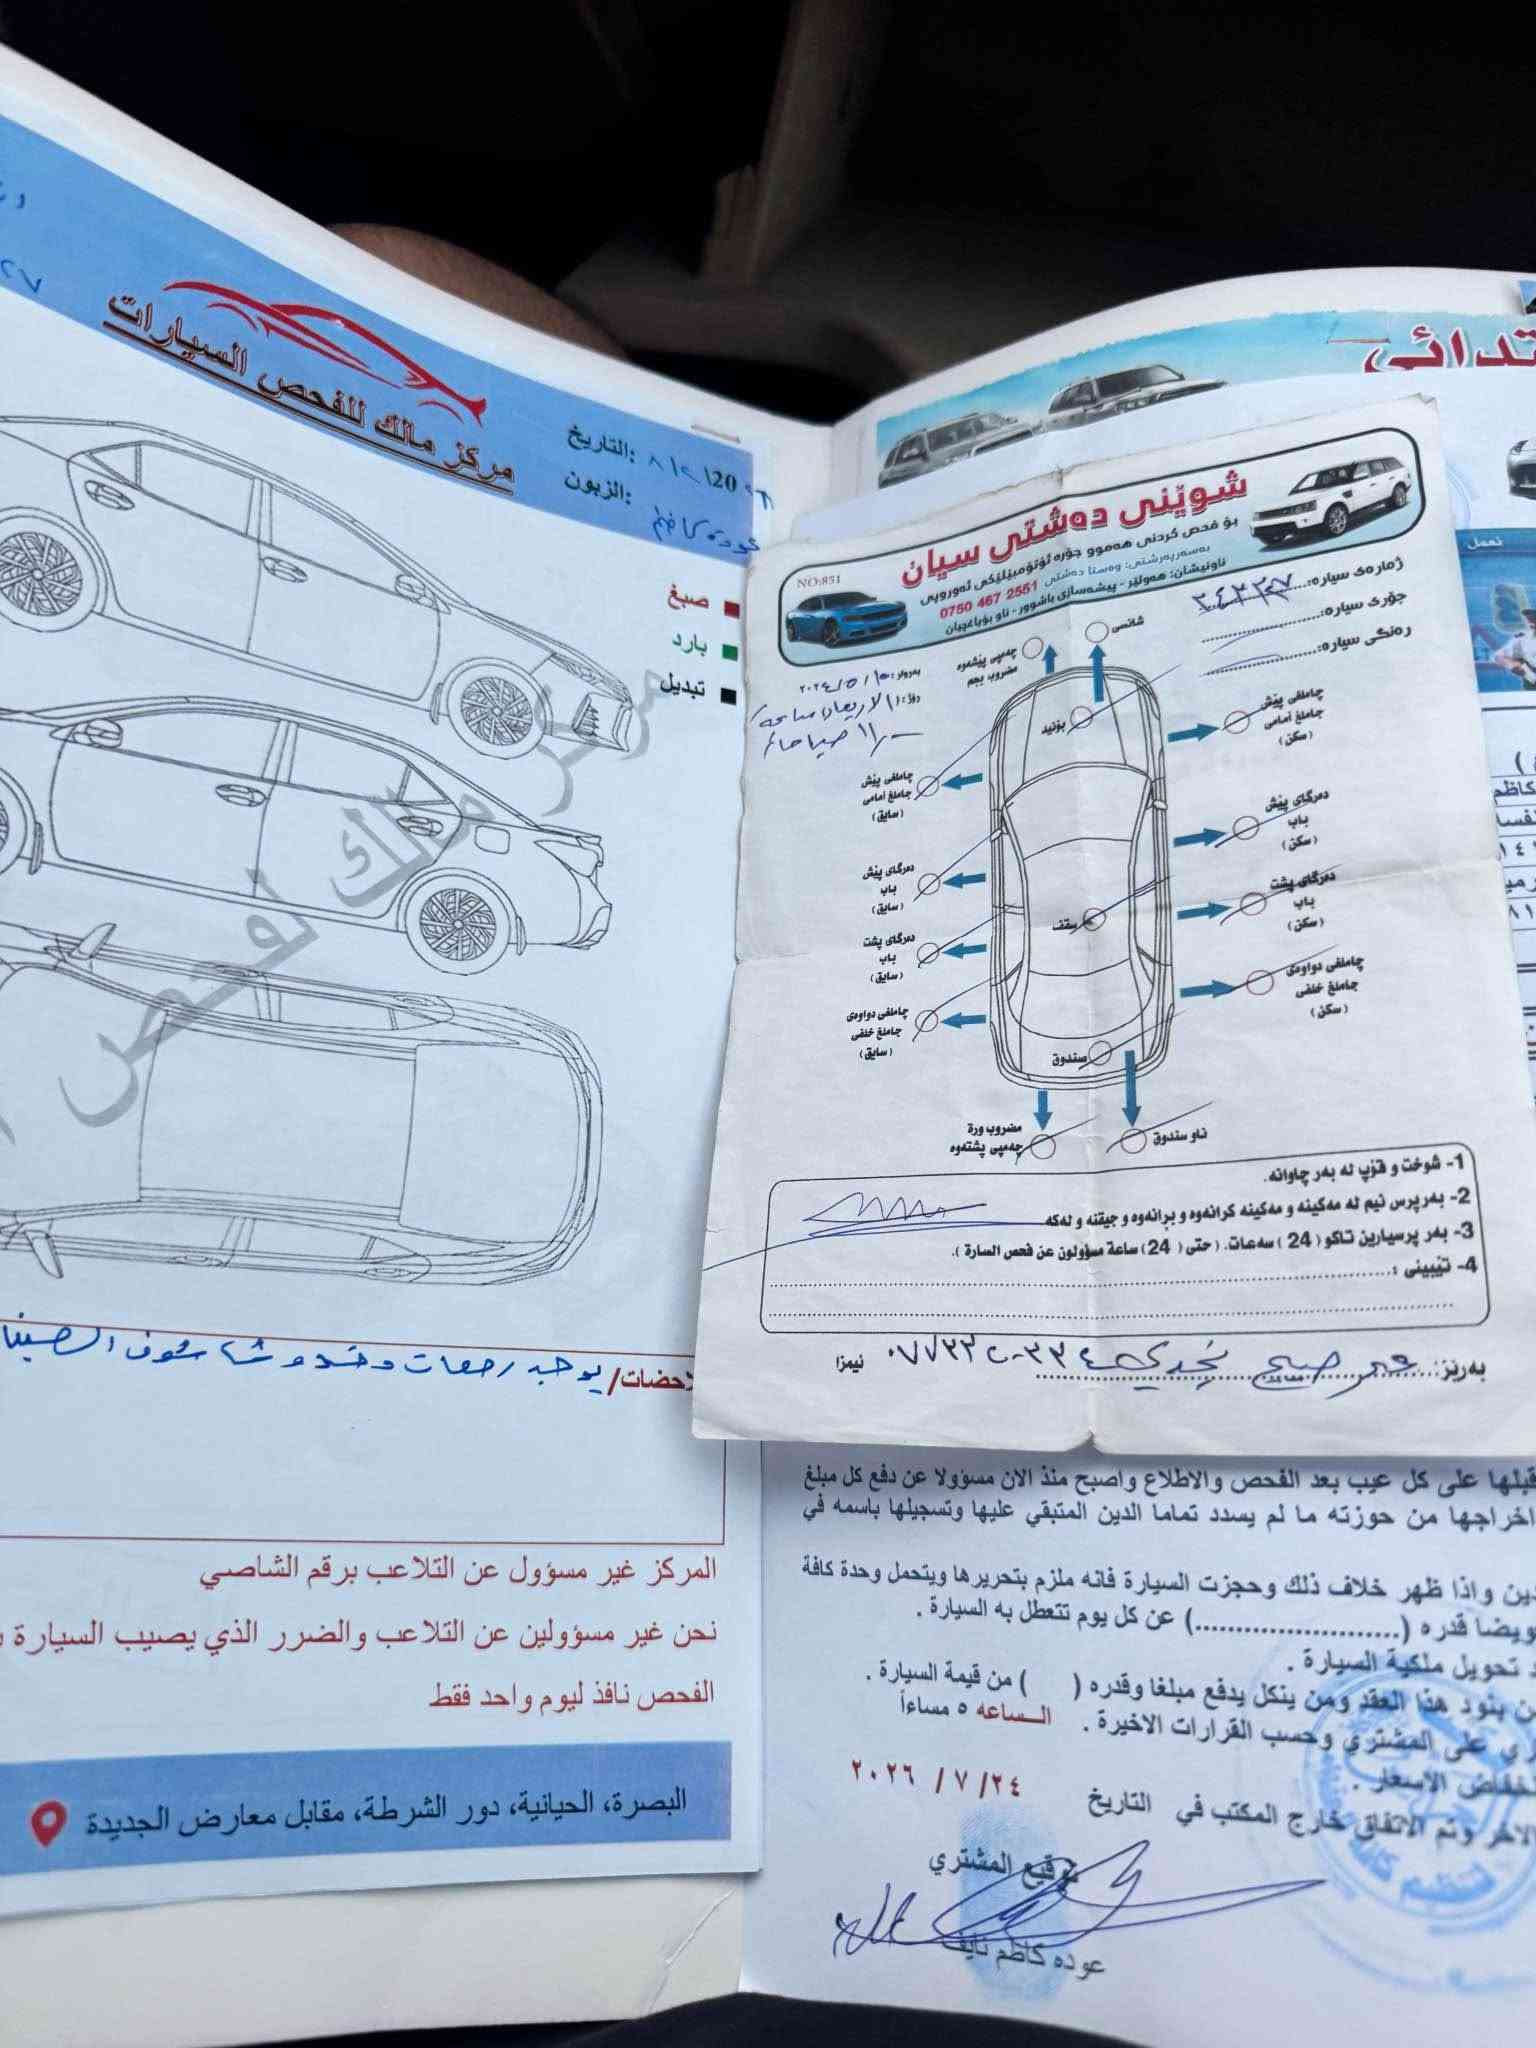 مركز مالك للفحص السيارات
التاريخ:
الزبون:
عوده كاظم
صبغ
بارد
تبديل
مركز مالك لفحص
يوجد رصعات وخدوش
المركز غير مسؤول عن التلاعب برقم الشاصي
نحن غير مسؤولين عن التلاعب والضرر الذي يصيب السيارة
الفحص نافذ ليوم واحد فقط
البصرة، الحيانية، دور الشرطة، مقابل معارض الجديدة
شوێنی دەشتی سیان
بۆ فحص کردنی هەموو جۆرە ئۆتۆمبێلێکی ئەوروپی
بەسەرپەرشتی: وەستا دەشتی 0750 467 2551
ناونیشان: هەولێر - پیشەسازی باشوور - ناو بۆیاغچیان
NO:851
ژمارەی سیارە:
جۆری سیارە:
رەنگی سیارە:
بەروار: ٢٠٢٤/٥/١٥
رۆژ: الاربعاء ساعة
١١٫٠٠ صباحا
شاسی
چەمپی پێشەوە
مضروب بجم
بۆنید
چاملغی پێش
جاملغ امامي
(سكن)
چاملغی پێش
جاملغ امامي
(سايق)
دەرگای پێش
باب
(سكن)
دەرگای پێش
باب
(سايق)
دەرگای پشت
باب
(سكن)
سقف
دەرگای پشت
باب
(سايق)
چاملغی دواوەی
جاملغ خلفي
(سكن)
چاملغی دواوەی
جاملغ خلفي
(سايق)
صندوق
مضروب ورة
چەمپی پشتەوە
ناو سندوق
1- شوخت و قۆپ لە بەر چاوانە.
2- بەرپرس نیم لە مەکینە و مەکینە کرانەوە و برانەوە و جیقنە و لەکە
3- بەر پرسیارین تاکو ( 24 ) سەعات. ( حتى ( 24 ) ساعة مسؤولون عن فحص السارة ).
4- تێبینی :
بەرێز:
نیمزا
قبلها على كل عيب بعد الفحص والاطلاع واصبح منذ الان مسؤولا عن دفع كل مبلغ
اخراجها من حوزته ما لم يسدد تماما الدين المتبقي عليها وتسجيلها باسمه في
دين واذا ظهر خلاف ذلك وحجزت السيارة فانه ملزم بتحريرها ويتحمل وحدة كافة
قدره (......................) عن كل يوم تتعطل به السيارة .
تحويل ملكية السيارة .
بنود هذا العقد ومن ينكل يدفع مبلغا وقدره ( ) من قيمة السيارة .
على المشتري وحسب القرارات الاخيرة . الساعه ٥ مساءاً
الاسعار .
الاخر وتم الاتفاق خارج المكتب في التاريخ ٢٠٢٦ / ٧ / ٢٤
توقيع المشتري
عوده كاظم نايف